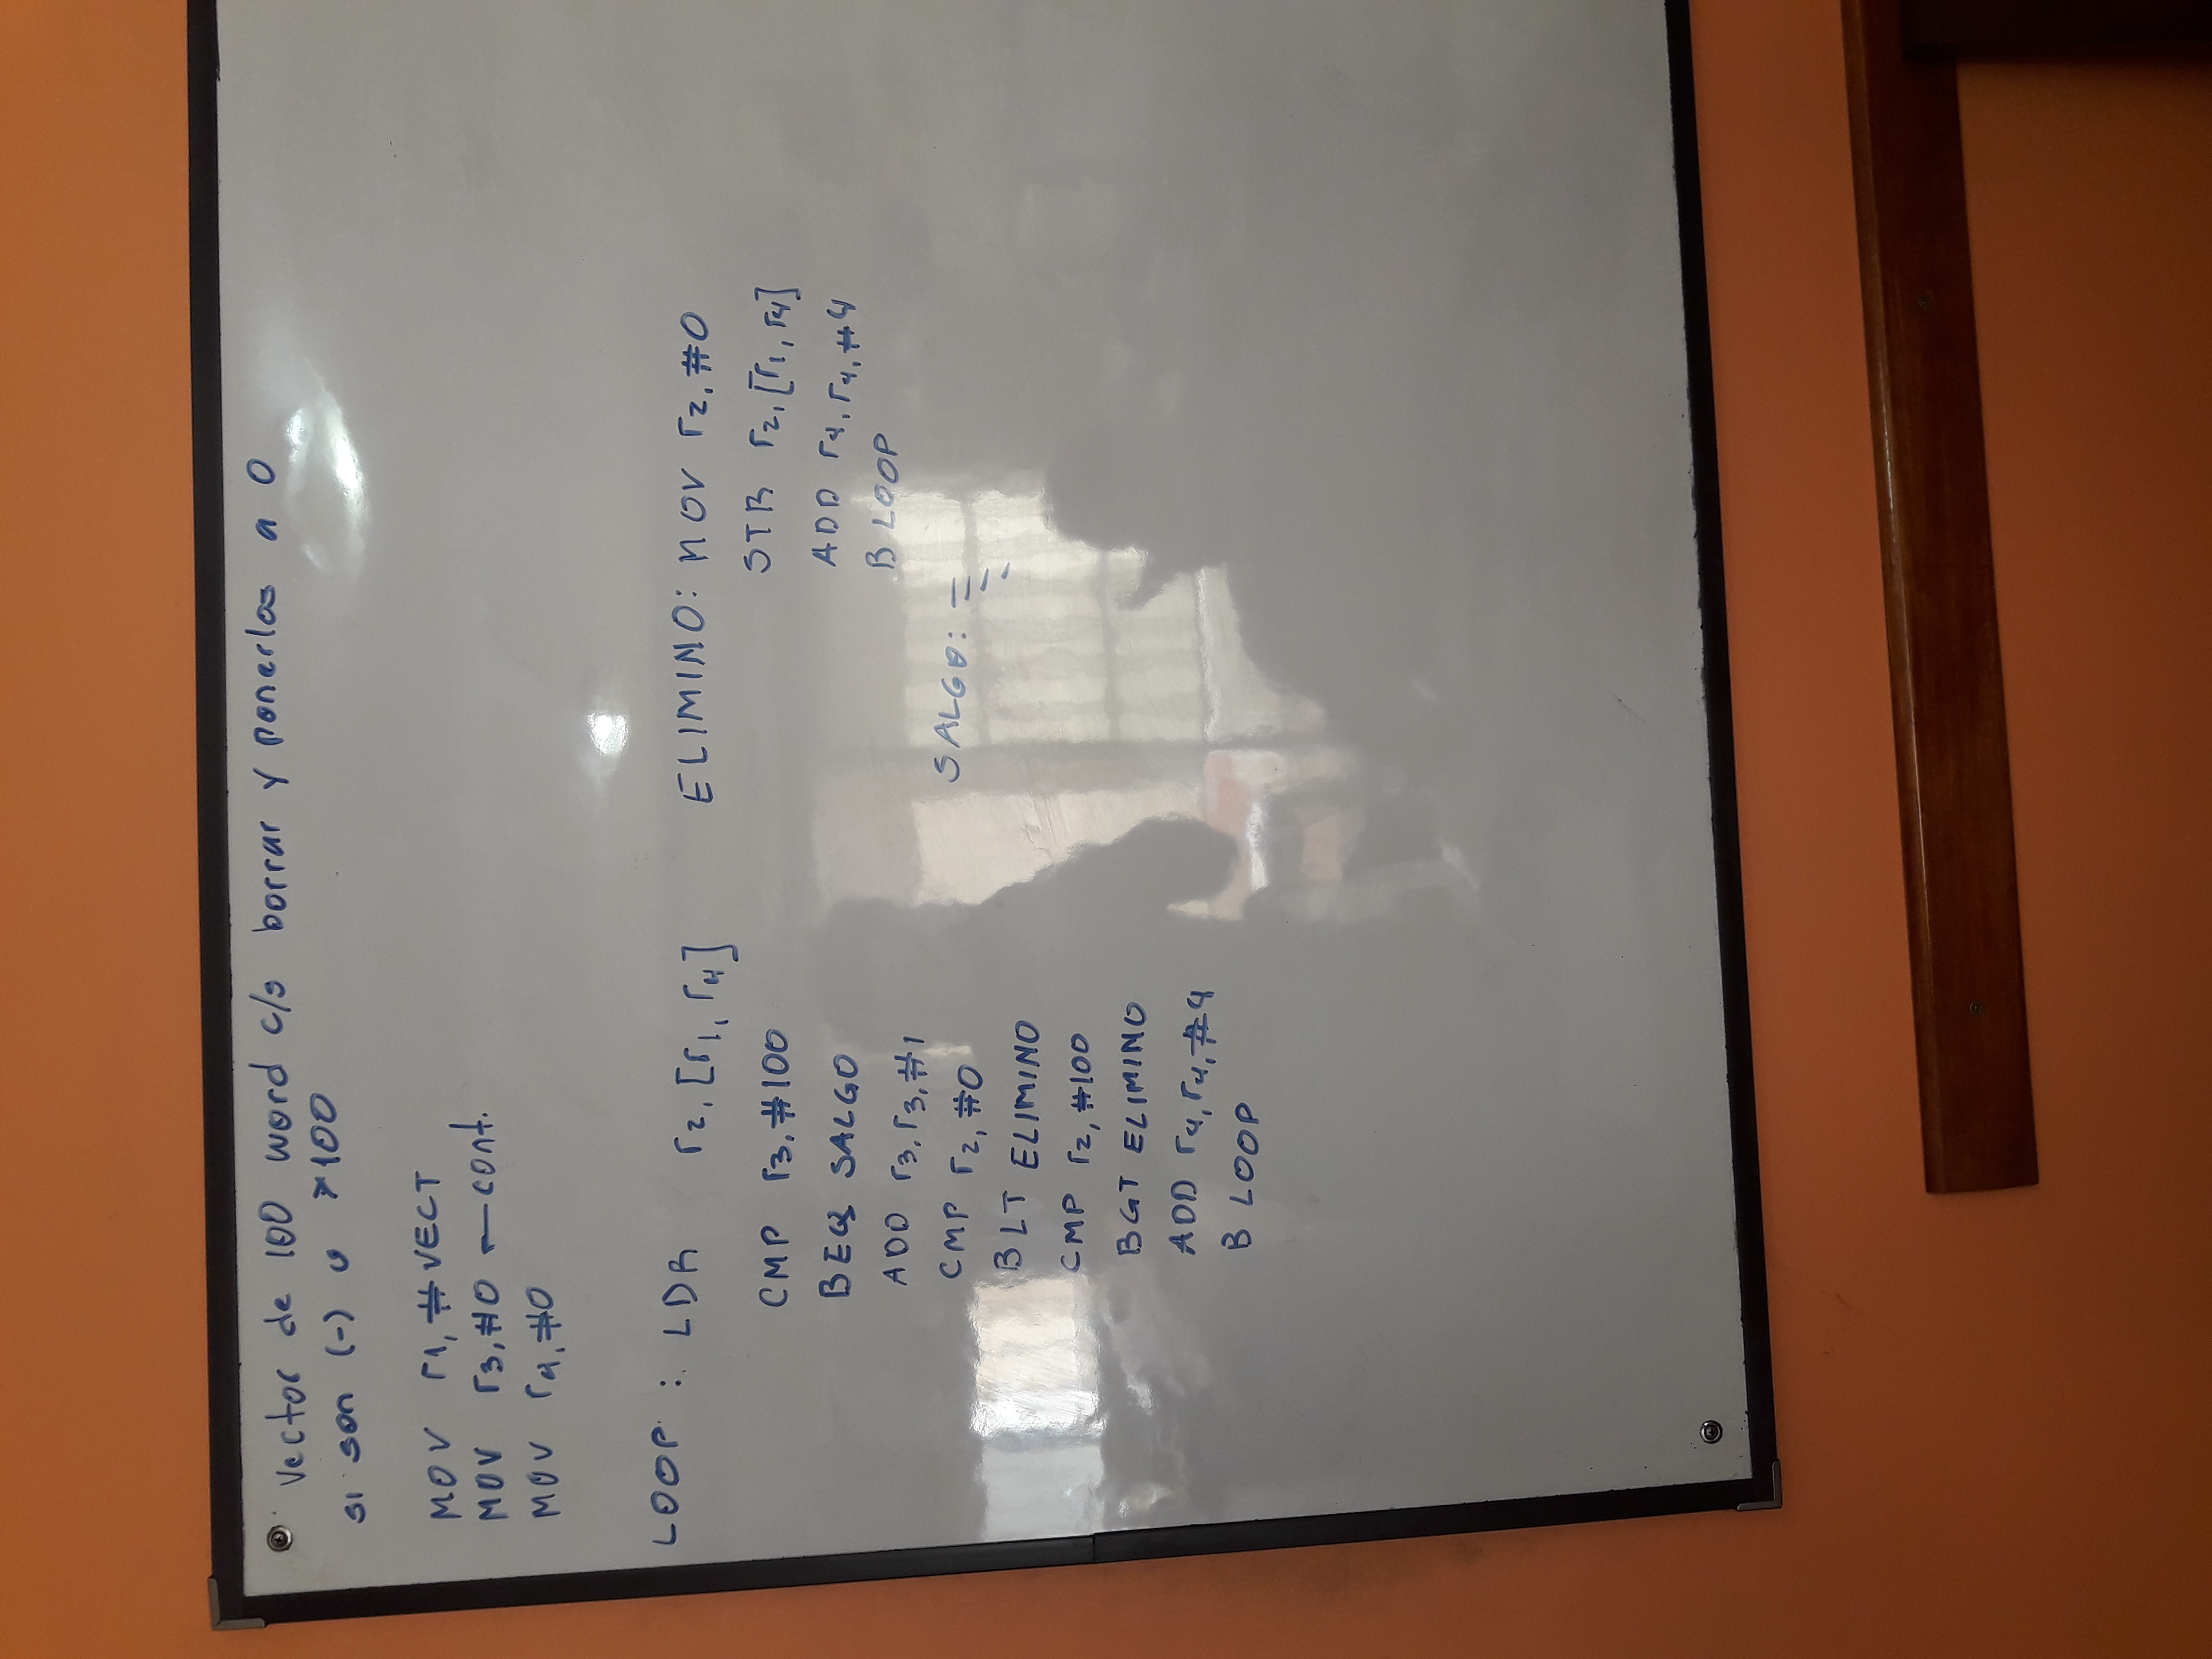 Vector de 100 word c/s borrar y ponerlos a 0
si son (-) o >100
MOV r1, #VECT
MOV r3, #0 ← cont.
MOV r4, #0
LOOP : LDR r2, [r1, r4]
CMP r3, #100
BEQ SALGO
ADD r3, r3, #1
CMP r2, #0
BLT ELIMINO
CMP r2, #100
BGT ELIMINO
ADD r4, r4, #4
B LOOP
ELIMINO: MOV r2, #0
STR r2, [r1, r4]
ADD r4, r4, #4
B LOOP
SALGO: